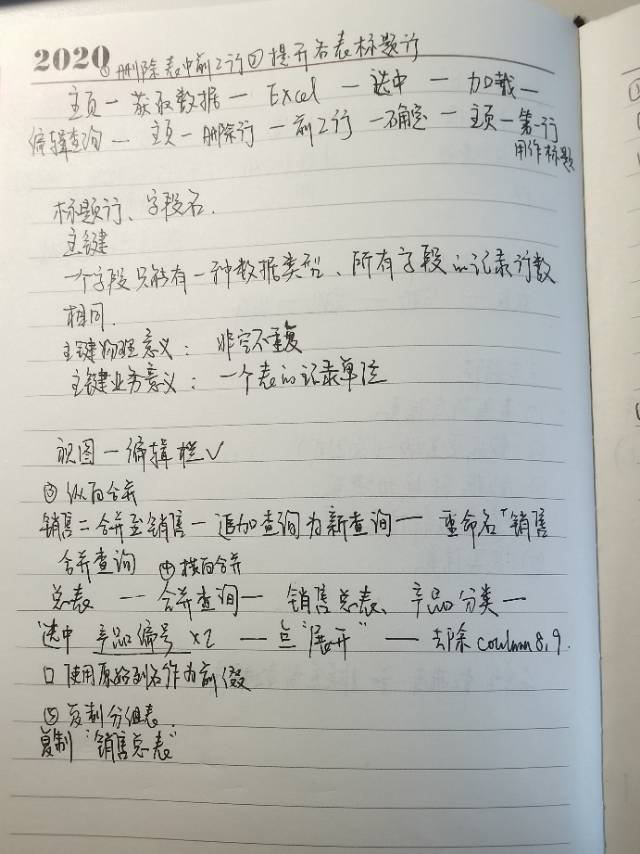 2020 ①删除表中前2行②提升各表标题行
主页一获取数据一Excel一选中一加载一
编辑查询一主页一删除行一前2行一确定一主页一第一行
用作标题
标题行、字段名.
主键
一个字段只能有一种数据类型、所有字段的记录行数
相同.
主键物理意义：非空不重复
主键业务意义：一个表的记录单位
视图一编辑栏√
③纵向合并
销售二合并至销售一追加查询为新查询一重命名"销售
合并查询 ④横向合并
总表一合并查询一销售总表、产品分类一
"选中产品编号×2一点"展开"一去除coulmn8,9.
口使用原始列名作为前缀
⑤复制分组表.
复制"销售总表"